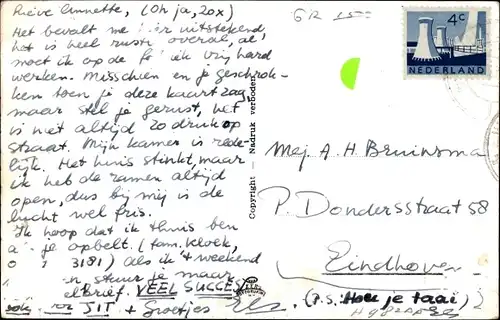 Lieve Annette, (Oh ja, 20x)
Het bevalt me hier uitstekend
het is heel rustig overal, al
moet ik op de fa iek vrij hard
werken. Misschien en je geschrok-
ken toen je deze kaart zag,
maar stel je gerust, het
is niet altijd zo druk op
straat. Mijn kamer is rede-
lijk. Het huis stinkt, maar
ik heb de ramen altijd
open, dus bij mij is de
lucht wel fris.
Ik hoop dat ik thuis ben
a je opbelt. (tam. kloek,
0 3181) als ik 't weekend
en stuur je maar
elbrief. VEEL SUCCES
JIT + Groetjes
GR 15
4c
NEDERLAND
Copyright - Nadruk verboden
Mej A. H. Bruinsma
P. Dondersstraat 58
Eindhoven
(P.S. Hou je taai)